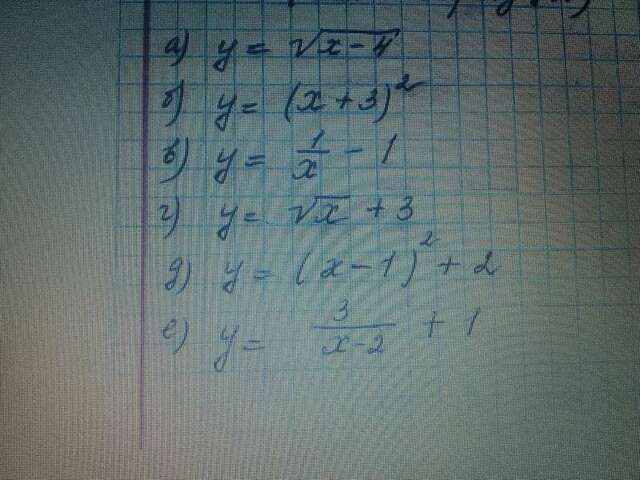 а) y = √x-4
б) y = (x+3)²
в) y = 1/x - 1
г) y = √x + 3
д) y = (x-1)² + 2
е) y = 3/x-2 + 1